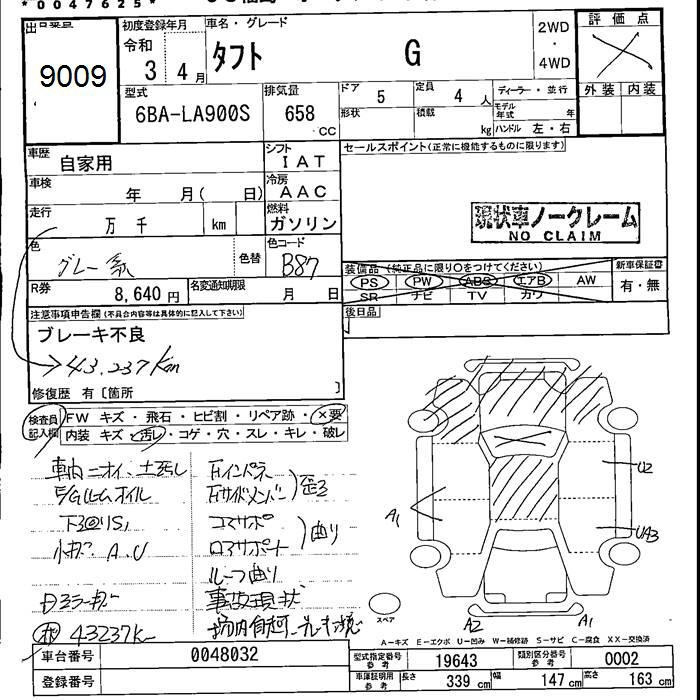 *0047625*
9009
初度登録年月
令和
3 4月
車名・グレード
タフト G
2WD
・
4WD
評価点
外装 内装
型式
6BA-LA900S
排気量
658
CC
ドア
5
定員
4 人
形状
積載
kg
ディーラー・並行
モデル年式 年
ハンドル 左・右
車歴
自家用
シフト
IAT
セールスポイント(正常に機能するものに限ります)
車検
年 月( 日)
冷房
AAC
走行
万 千 km
燃料
ガソリン
現状車ノークレーム
NO CLAIM
色
グレー系
色替
色コード
B87
装備品(純正品に限り○をつけてください)
PS PW ABS エアB AW
SR ナビ TV カワ
新車保証書
有・無
R券
8,640 円
名変通知期限
月 日
後日品
注意事項申告欄(不具合内容等は具体的に記入して下さい)
ブレーキ不良
→43,237km
修復歴 有〔箇所 〕
検査員記入欄
FW キズ・飛石・ヒビ割・リペア跡・×要
内装 キズ・汚レ・コゲ・穴・スレ・キレ・破レ
小キズ A.U
ルーフ曲り
事故現状
43237k
A1
U2
UA3
A2
A1
スペア
A-キズ E-エクボ U-凹み W-補修跡 S-サビ C-腐食 XX-交換済
車台番号
0048032
登録番号
型式指定番号
参考
19643
類別区分番号
参考
0002
車庫証明用
参考
長さ
339 cm
幅
147 cm
高さ
163 cm